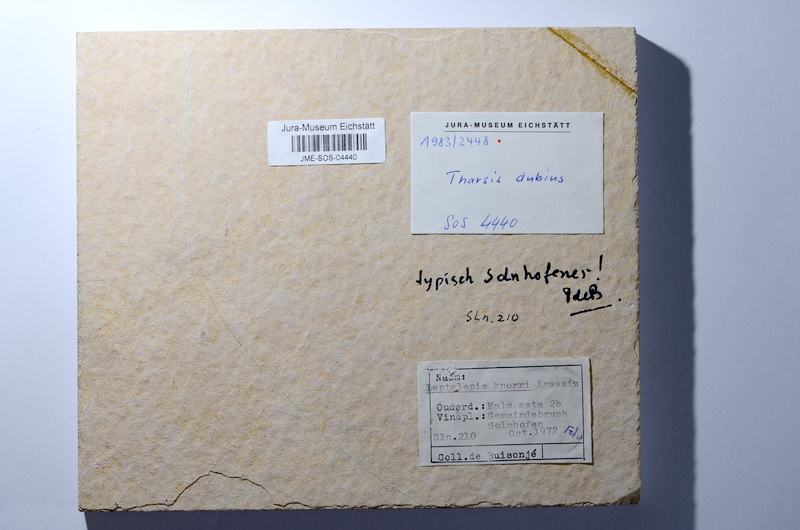 Jura-Museum Eichstätt
JME-SOS-04440
JURA-MUSEUM EICHSTÄTT
1983/2448
Tharsis dubius
SOS 4440
typisch Solnhofener!
PdeB.
SLn.210
Naam:
Leptolepis knorri Agassiz
Ouderd.: Malm zeta 2b
Vindpl.: Gemeindebruch
Solnhofen
Sln.210 Oct.1972
Coll.de Buisonjé